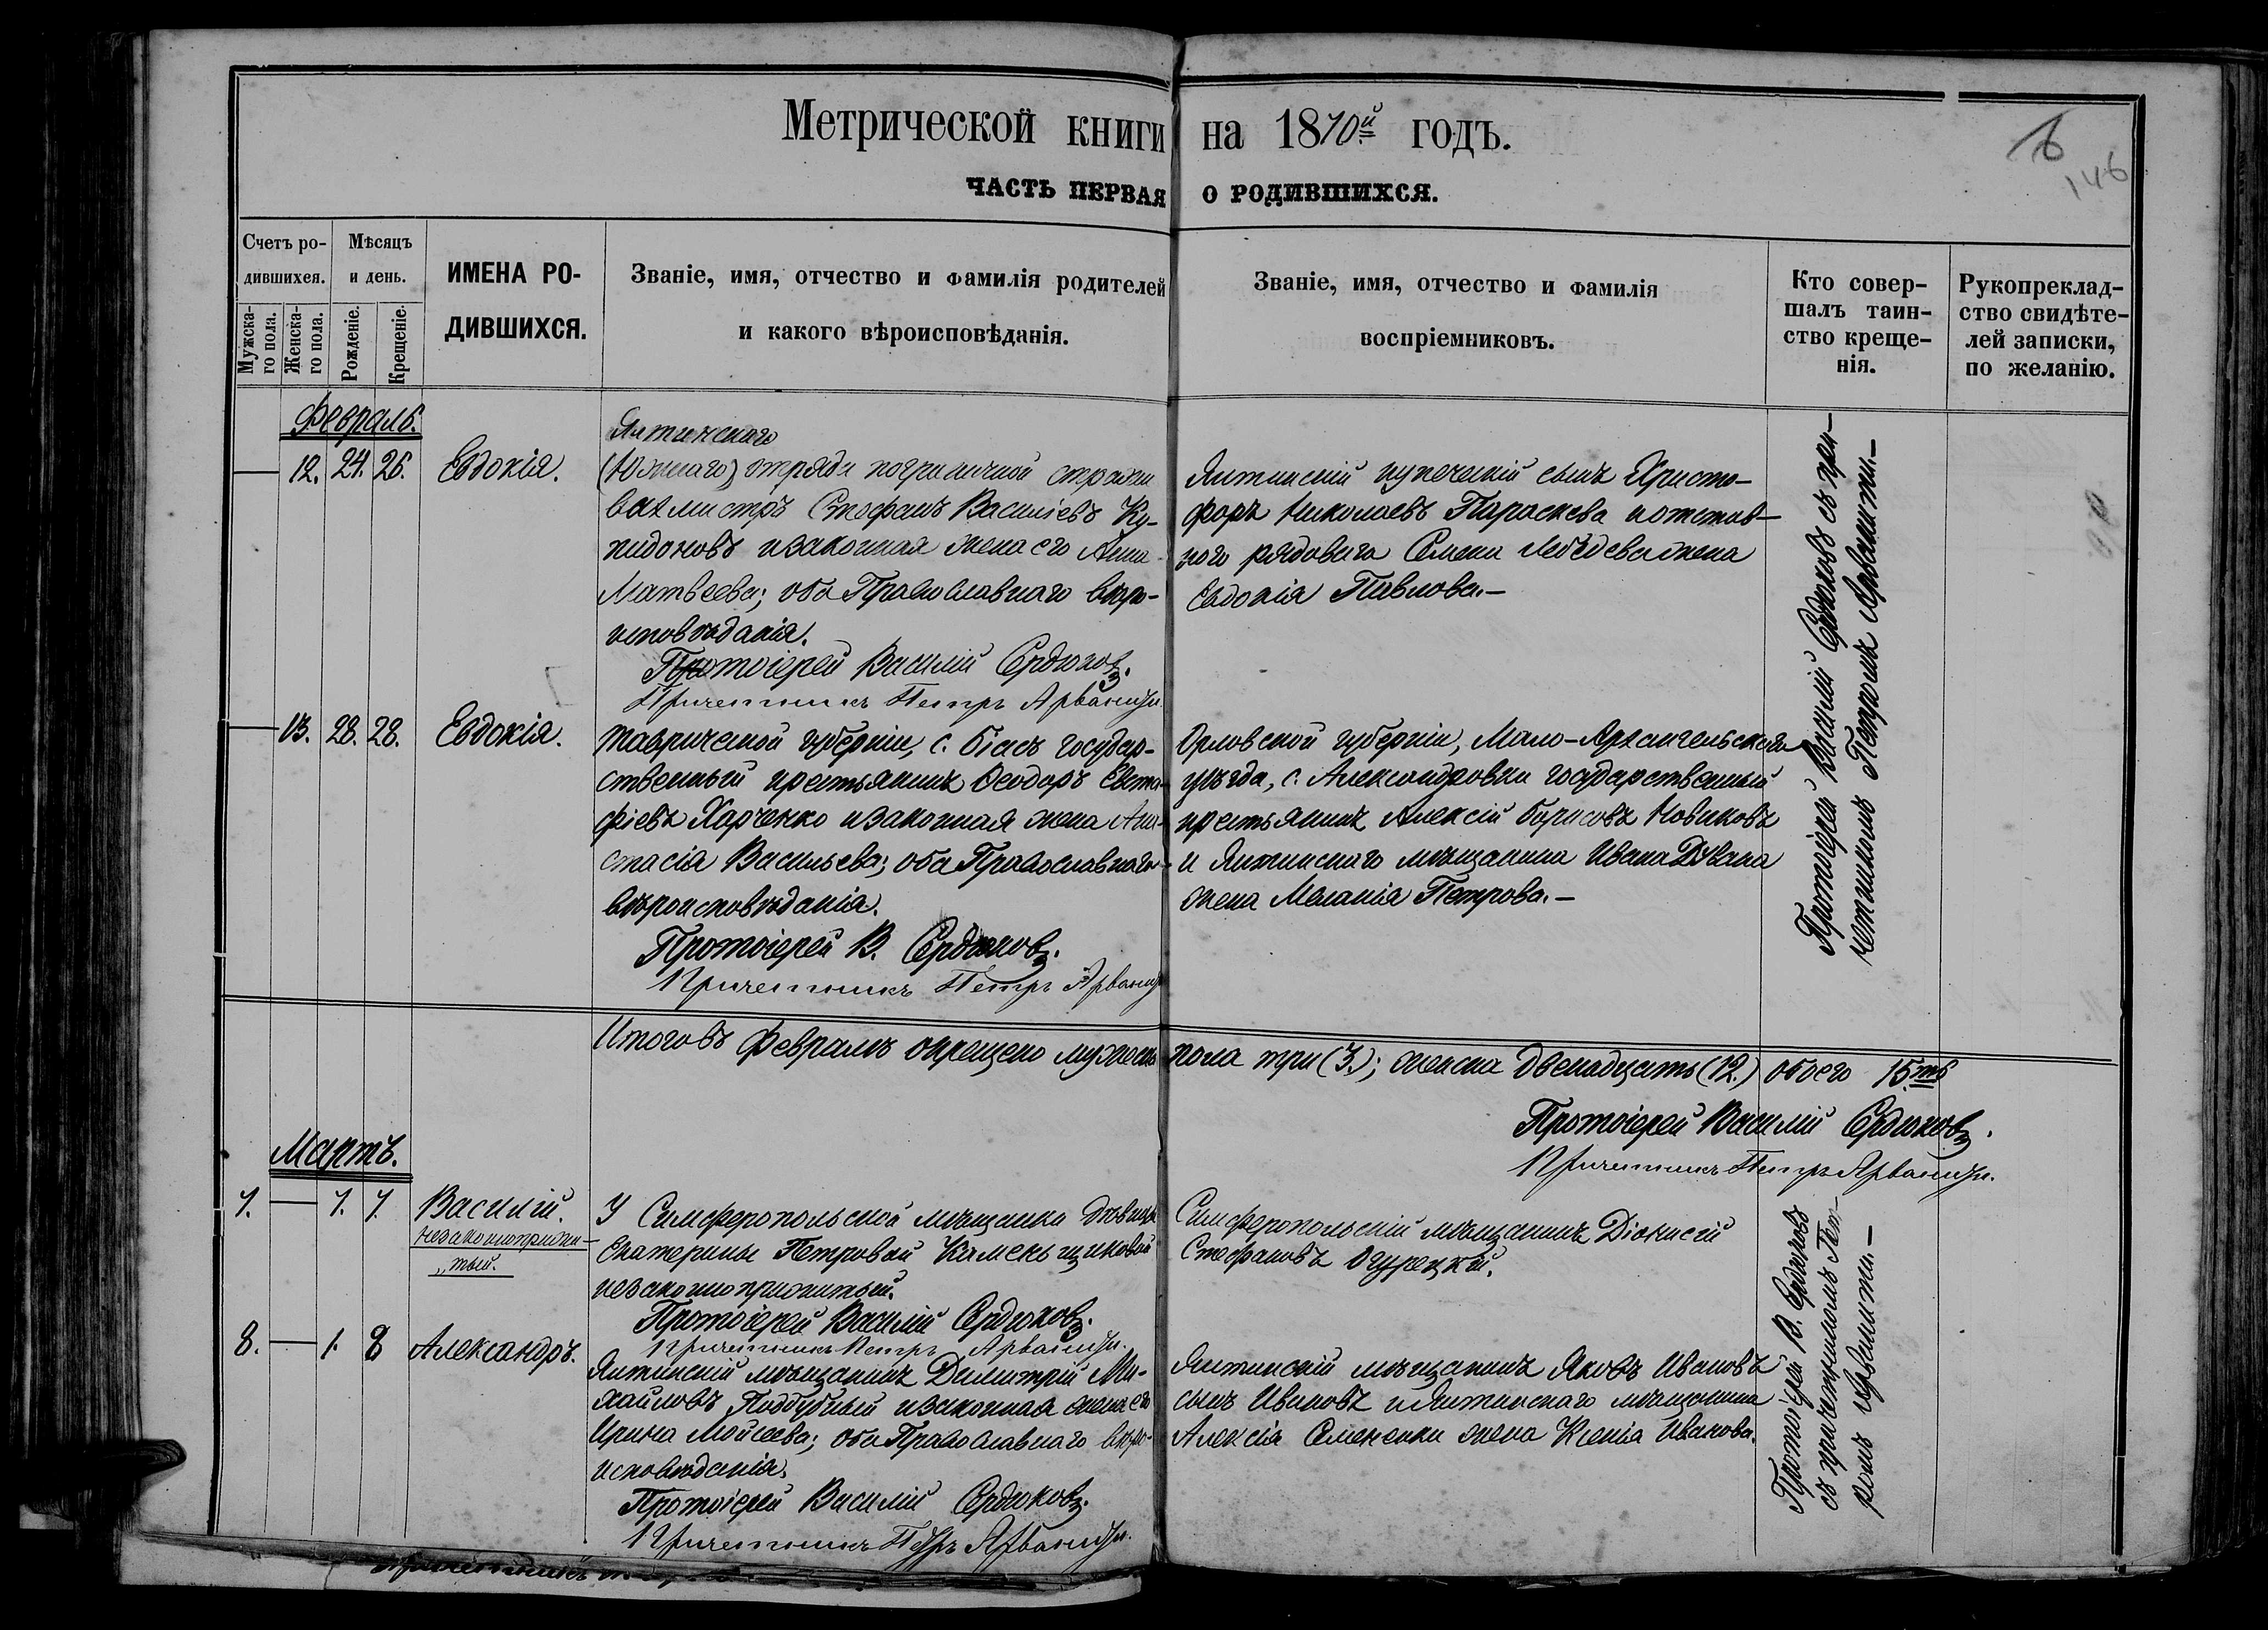 Метрической книги на 1870й годъ.
6
146
ЧАСТЬ ПЕРВАЯ О РОДИВШИХСЯ.
Счетъ ро-
дившихся.
Мужска-
го пола.
Женска-
го пола.
Мѣсяцъ
и день.
Рожденіе.
Крещеніе.
ИМЕНА РО-
ДИВШИХСЯ.
Званіе, имя, отчество и фамилія родителей
и какого вѣроисповѣданія.
Званіе, имя, отчество и фамилія
воспріемниковъ.
Кто совер-
шалъ таин-
ство креще-
нія.
Рукопреклад-
ство свидѣте-
лей записки,
по желанію.
Февраль.
12. 24. 26. Евдокія.
Ялтинскаго
(Южнаго) отряда пограничной стражи
вахмистръ Стефанъ Василіевъ Ку-
пидоновъ и законная жена его Анна
Матвеева; оба Православнаго вѣро-
исповѣданія.
Протоіерей Василій Сердюковъ.
Причетникъ Петръ Арванити
Ялтинскій купеческій сынъ Христо-
форъ Николаевъ Параскева и отстав-
ного рядоваго Семена Лебедева жена
Евдокія Павлова.—
Протоіерей Василій Сердюковъ съ при-
четникомъ Петромъ Арванити.—
13. 28. 28. Евдокія.
Таврической губерніи, с. Біасъ государ-
ственный крестьянинъ Ѳеодоръ Евста-
фіевъ Харченко и законная жена Ана-
стасія Васильева; оба Православнаго
вѣроисповѣданія.
Протоіерей В. Сердюковъ.
Причетникъ Петръ Арванити
Орловской губерніи, Мало-Архангельскаго
уѣзда, с. Александровки государственный
крестьянинъ Алексій Борисовъ Новиковъ
и Ялтинскаго мѣщанина Ивана Дувана
жена Меланія Петрова.—
Итого въ Февралѣ окрещено мужеска пола три (3.); женска двенадцать (12.) обоего 15.ть
Протоіерей Василій Сердюковъ.
Причетникъ Петръ Арванити.
Мартъ.
7. 1. 1. Василій.
незаконноприжи-
„тый.
У Симферопольской мѣщанки дѣвицы
Екатерины Петровой Каменьщиковой
незаконноприжитый.
Протоіерей Василій Сердюковъ.
Причетникъ Петръ Арванити.
Симферопольскій мѣщанинъ Діонисій
Стефановъ Огурецкій.
Протоіерей В. Сердюковъ
съ причетникомъ Пет-
ромъ Арванити.—
8. 1. 8 Александръ.
Ялтинскій мѣщанинъ Димитрій Ми-
хайловъ Поддубный и законная жена его
Ирина Мойсеева; оба Православнаго вѣро-
исповѣданія.
Протоіерей Василій Сердюковъ.
Причетникъ Петръ Арванити.
Ялтинскій мѣщанинъ Яковъ Ивановъ
сынъ Ивановъ и Ялтинскаго мѣщанина
Алексія Семененки жена Ксенія Иванова.